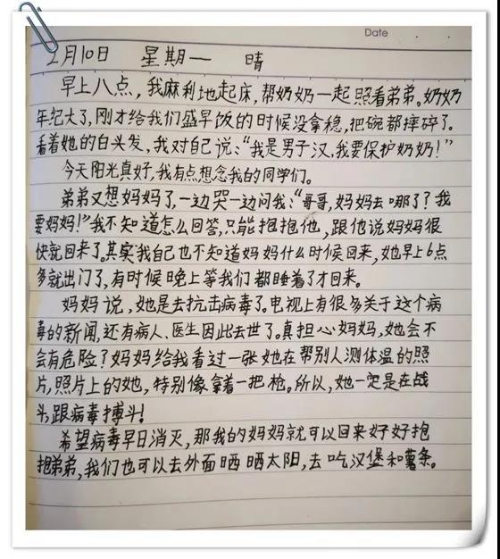 Date
2月10日 星期一 晴
早上八点，我麻利地起床，帮奶奶一起照看弟弟。奶奶
年纪大了，刚才给我们盛早饭的时候没拿稳，把碗都摔碎了。
看着她的白头发，我对自己说：“我是男子汉，我要保护奶奶！”
今天阳光真好，我有点想念我的同学们。
弟弟又想妈妈了，一边哭一边问我：“哥哥，妈妈去哪了？我
要妈妈！”我不知道怎么回答，只能抱抱他，跟他说妈妈很
快就回来了。其实我自己也不知道妈妈什么时候回来，她早上6点
多就出门了，有时候晚上等我们都睡着了才回来。
妈妈说，她是去抗击病毒了。电视上有很多关于这个病
毒的新闻，还有病人、医生因此去世了。真担心妈妈，她会不
会有危险？妈妈给我看过一张她在帮别人测体温的照
片，照片上的她，特别像拿着一把枪。所以，她一定是在战
斗，跟病毒搏斗！
希望病毒早日消灭，那我的妈妈就可以回来好好抱
抱弟弟，我们也可以去外面晒晒太阳，去吃汉堡和薯条。